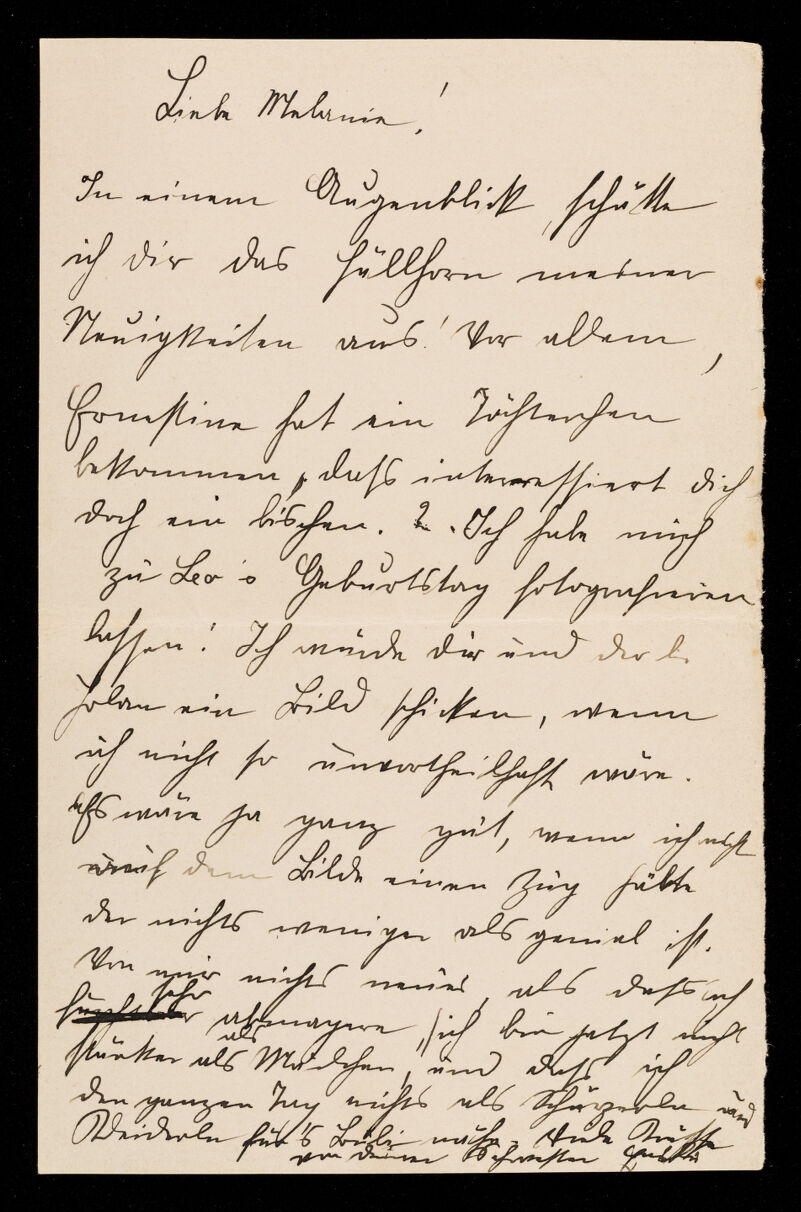 Liebe Melanie!
In einem Augenblick, schütte
ich dir das Füllhorn meiner
Neuigkeiten aus! Vor allem,
Ernestine hat ein Töchterchen
bekommen, dass interressiert dich
doch ein bischen. ? Ich habe mich
zu Leo's Geburtstag fotografieren
lassen! Ich würde dir und der l.
Jolan ein Bild schicken, wenn
ich nicht so unvortheilhaft wäre.
Es wäre ja ganz gut, wenn ich nicht
auf dem Bilde einen Zug hätte
der nichts weniger als genial ist.
Von mir nichts neues, als dass ich
sehr
abmagere, (ich bin jetzt nicht
stärker als als Mädchen, und dass ich
den ganzen Tag nichts als Schürzerln und
Kleiderln für's Bubi nähe. Viele Küsse
von deiner Schwester